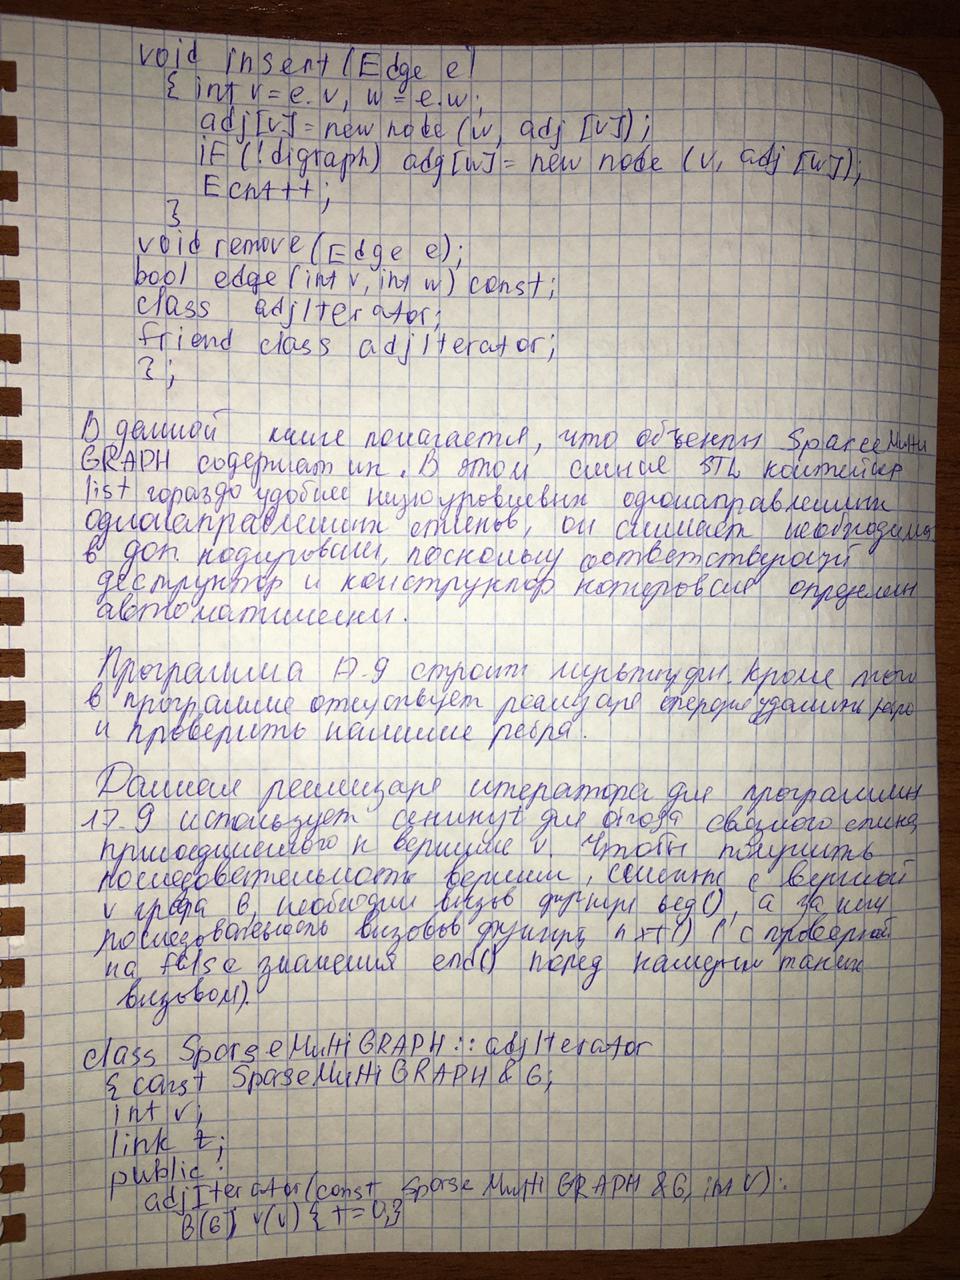 void insert (Edge e)
{ int v = e.v, w = e.w;
adj[v] = new node (w, adj [v]);
if (!digraph) adg[w] = new node (v, adj [w]);
Ecnt++;
}
void remove (Edge e);
bool edge (int v, int w) const;
class adjIterator;
friend class adjIterator;
};
В данной полагается, что объекты SparceMulti
GRAPH содержат их. В этом STL контейнер
list гораздо удобнее низкоуровневых однонаправленных
однонаправленных списков, он снимает необходимо
в доп. кодировании, поскольку соответствующий
деструктор и конструктор копирования определен
автоматически.
Программа 17.9 строит Кроме того
в программе отсутствует удаления
и проверить наличие ребра.
Данная итератора для программы
17.9 использует для связного списка,
присоединенного к вершине v. Чтобы получить
последовательность вершин, с вершиной
v графа в, необходим вызов функции beg(), а за ним
последовательность вызовов функции nxt() ( с проверкой
на false значения end() перед таким
вызовом).
class SparseMultiGRAPH :: adjIterator
{ const SpaseMultiGRAPH & G;
int v;
link t;
public:
adjIterator(const SparseMultiGRAPH &G, int v):
G(G) v(v) { t = 0;}